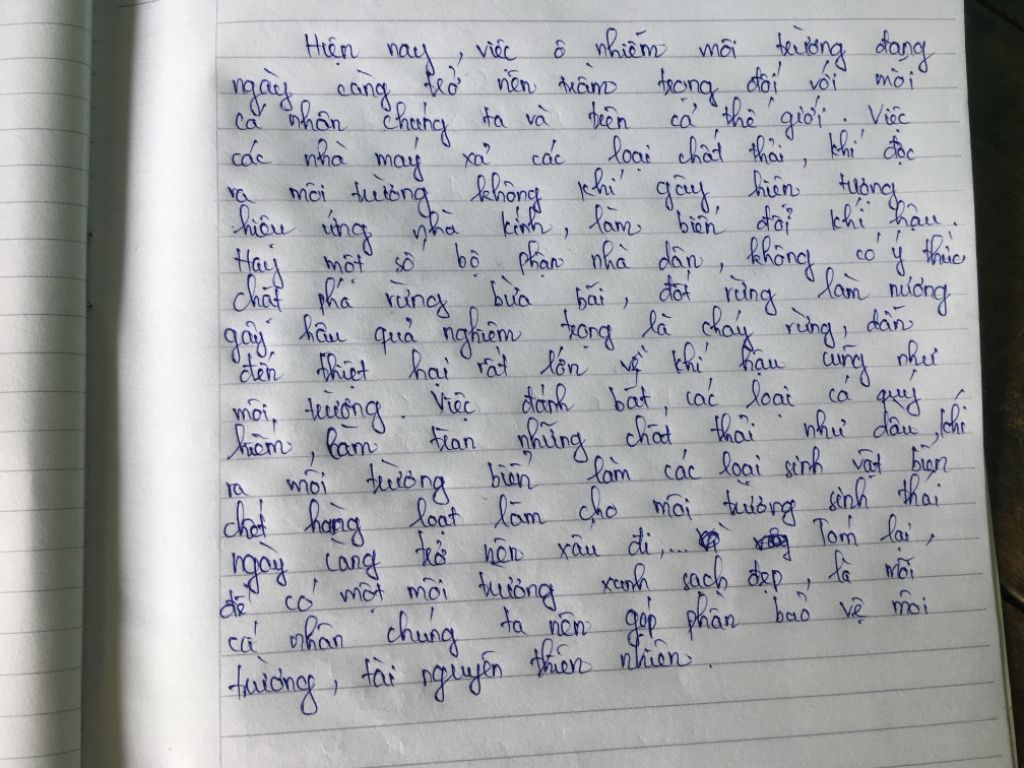 Hiện nay, việc ô nhiễm môi trường đang
ngày càng trở nên trầm trọng đối với mỗi
cá nhân chúng ta và trên cả thế giới. Việc
các nhà máy xả các loại chất thải, khí độc
ra môi trường không khí gây hiện tượng
hiệu ứng nhà kính, làm biến đổi khí hậu.
Hay một số bộ phận nhà dân, không có ý thức
chặt phá rừng bừa bãi, đốt rừng làm nương
gây hậu quả nghiêm trọng là cháy rừng, dẫn
đến thiệt hại rất lớn về khí hậu cũng như
môi trường. Việc đánh bắt, các loại cá quý
hiếm, làm tràn những chất thải như dầu, khí
ra môi trường biển làm các loại sinh vật biển
chết hàng loạt làm cho môi trường sinh thái
ngày càng trở nên xấu đi,... Tóm lại,
để có một môi trường xanh sạch đẹp, là mỗi
cá nhân chúng ta nên góp phần bảo vệ môi
trường, tài nguyên thiên nhiên.